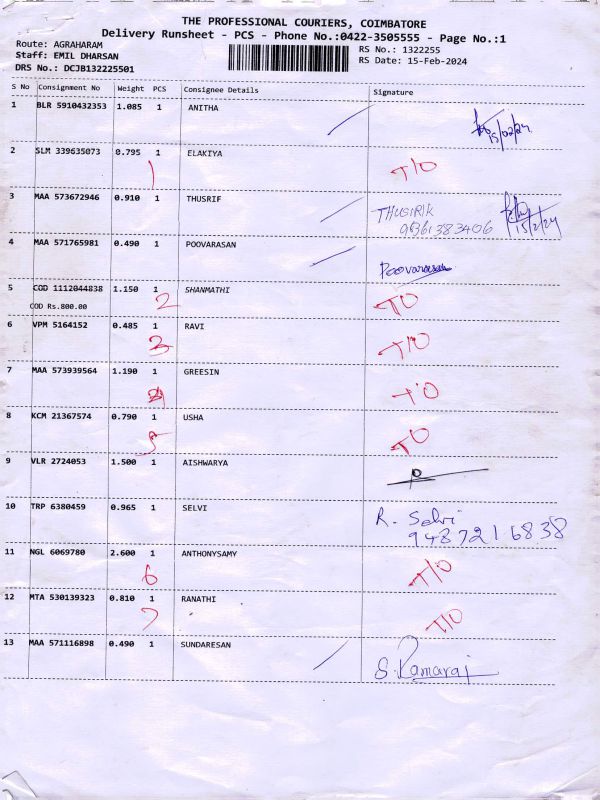 THE PROFESSIONAL COURIERS, COIMBATORE
Delivery Runsheet - PCS - Phone No.:0422-3505555 - Page No.:1
Route: AGRAHARAM
RS No.: 1322255
Staff: EMIL DHARSAN
RS Date: 15-Feb-2024
DRS No.: DCJB132225501
S No Consignment No Weight PCS Consignee Details Signature
1 BLR 5910432353 1.085 1 ANITHA
15/02/24
2 SLM 339635073 0.795 1 ELAKIYA T/O
1
3 MAA 573672946 0.910 1 THUSRIF THUSIRIK
9361383406 15/2/24
4 MAA 571765981 0.490 1 POOVARASAN
Poovarasan
5 COD 1112044838 1.150 1 SHANMATHI TO
COD Rs.800.00 2
6 VPM 5164152 0.485 1 RAVI T/O
3
7 MAA 573939564 1.190 1 GREESIN T/O
4
8 KCM 21367574 0.790 1 USHA TO
5
9 VLR 2724053 1.500 1 AISHWARYA
10 TRP 6380459 0.965 1 SELVI R. Selvi
9487216838
11 NGL 6069780 2.600 1 ANTHONYSAMY T/O
6
12 MTA 530139323 0.810 1 RANATHI T/O
7
13 MAA 571116898 0.490 1 SUNDARESAN
S. Ramaraj